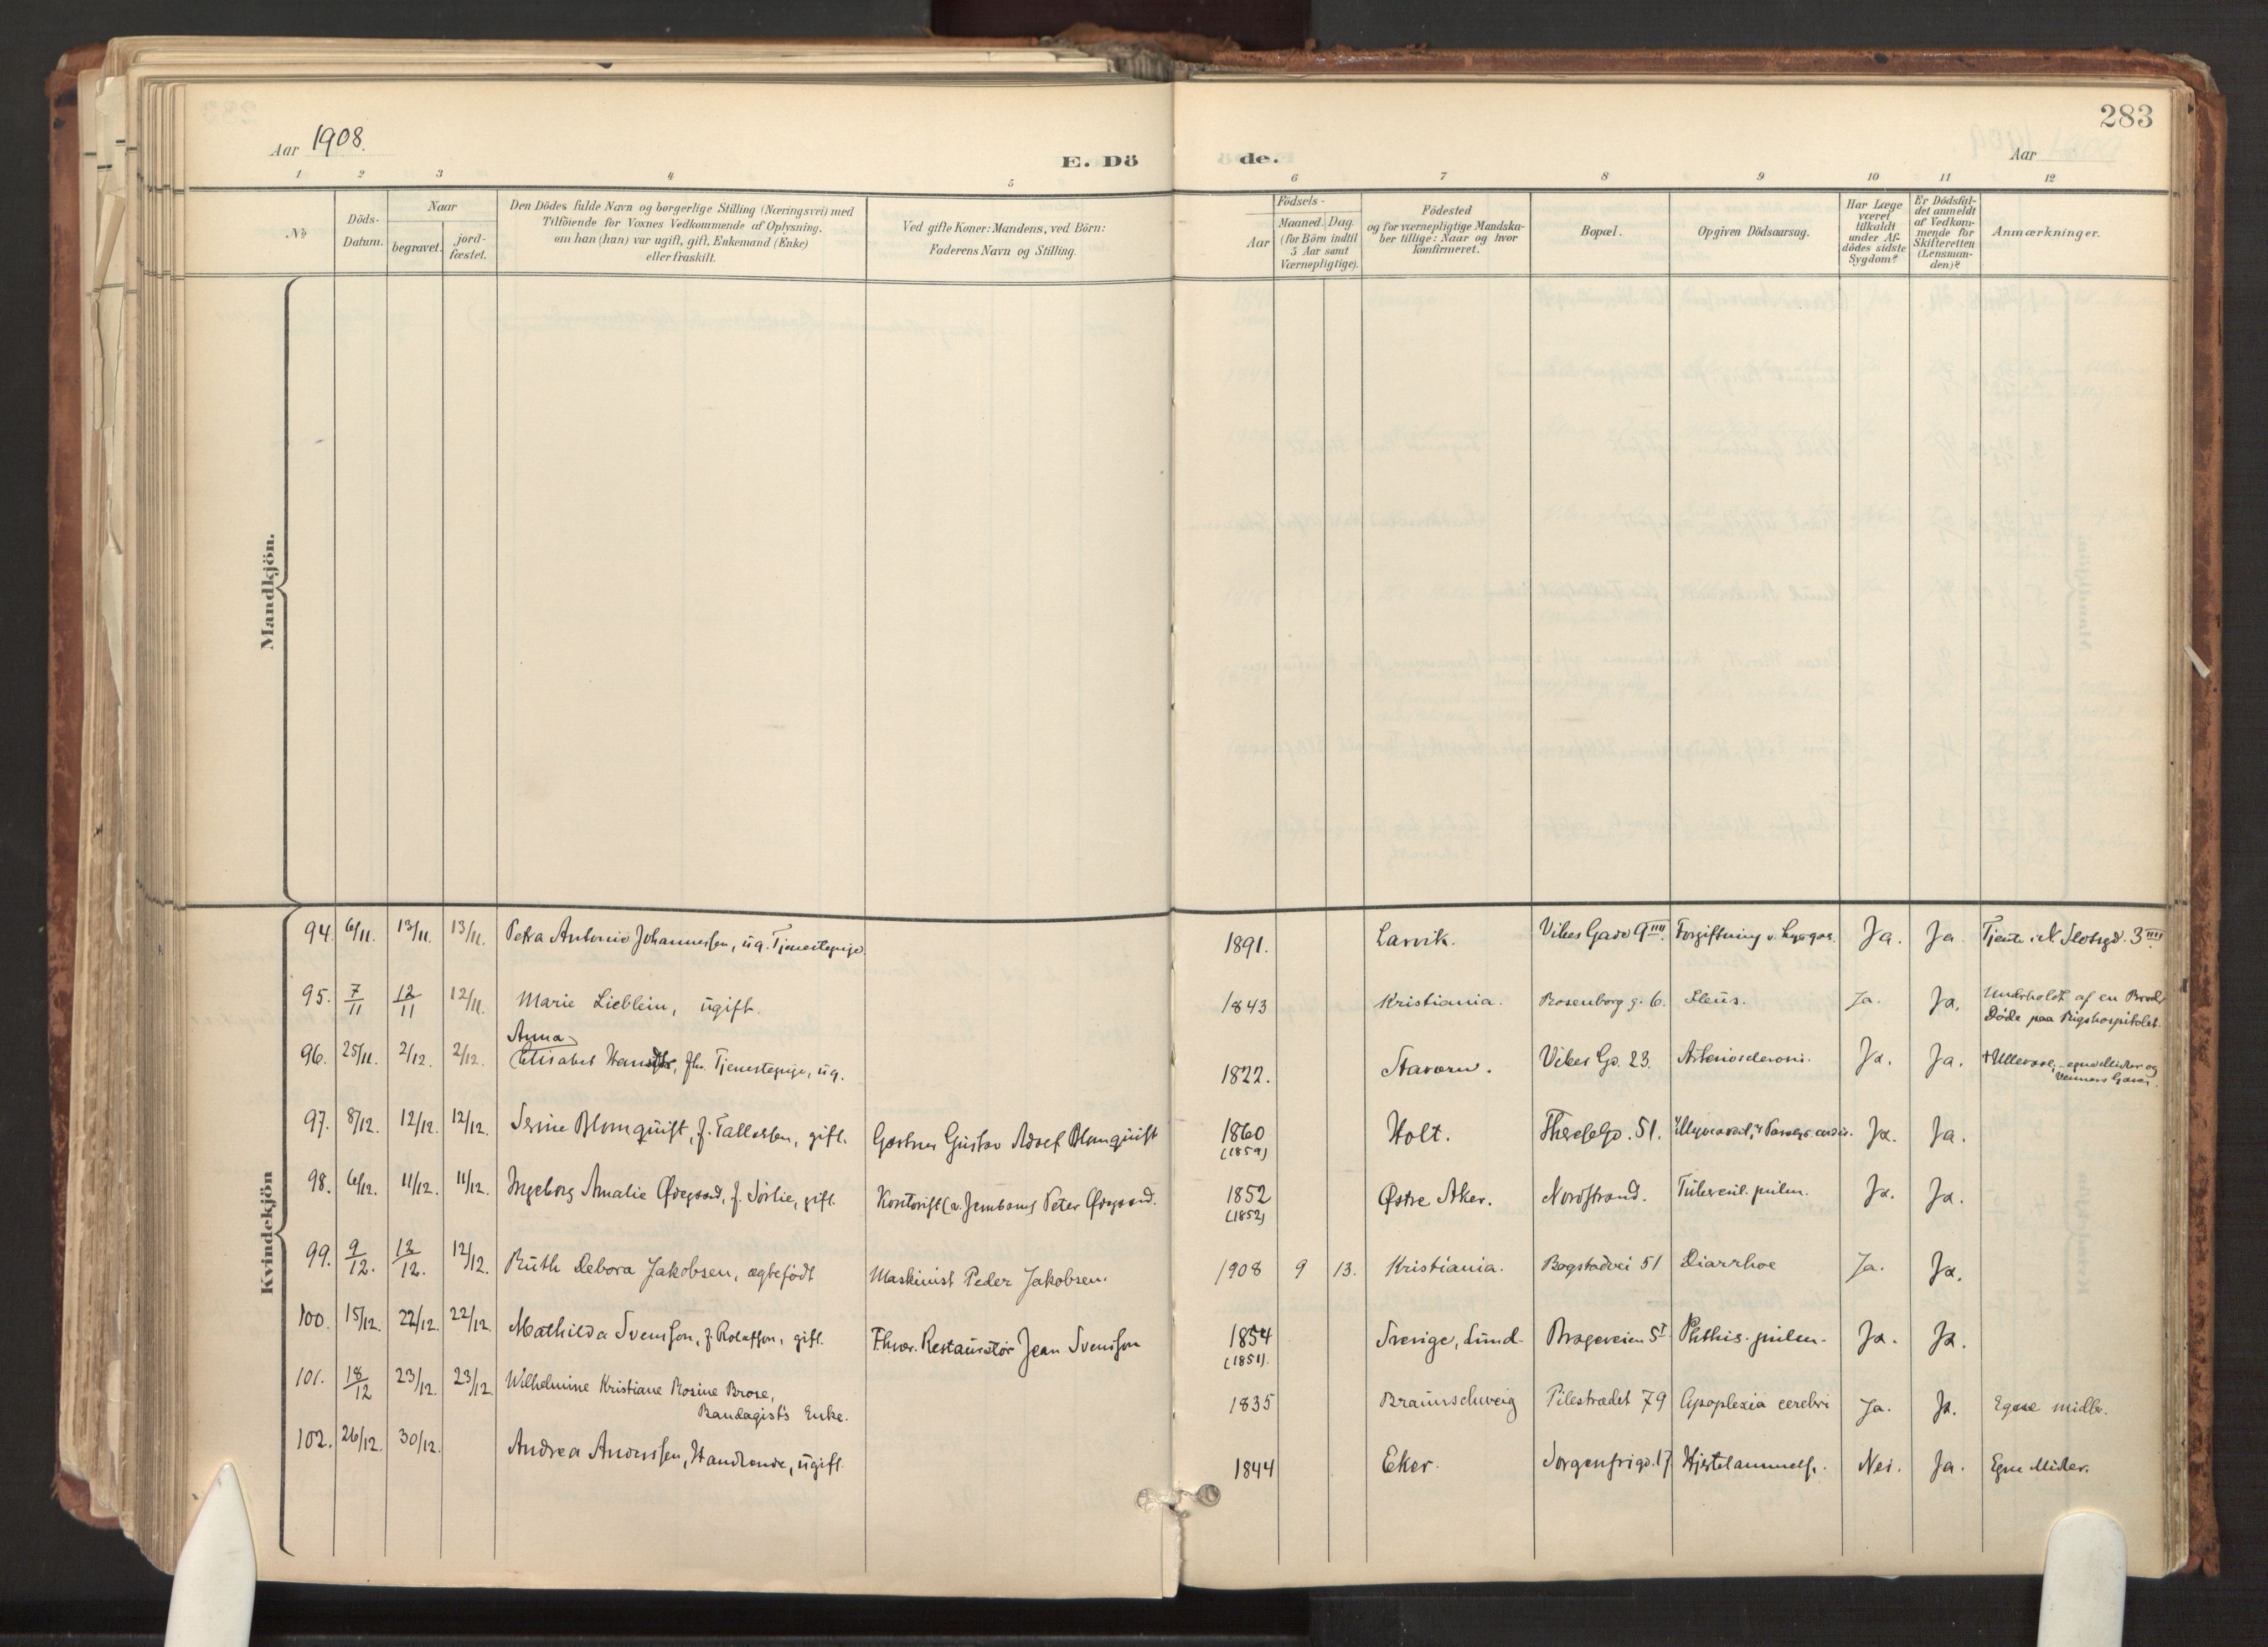 283
Aar 1908.
E. Dö de.
Aar
1 2 3 4 5 6 7 8 9 10 11 12
No
Döds-
Datum.
Naar
begravet.
jord-
fæstet.
Den Dödes fulde Navn og borgerlige Stilling (Næringsvei) med
Tilföiende for Voxnes Vedkommende af Oplysning,
om han (hun) var ugift, gift, Enkemand (Enke)
eller fraskilt.
Ved gifte Koner: Mandens, ved Börn:
Faderens Navn og Stilling.
Födsels-
Aar
Maaned. Dag
(for Börn indtil
5 Aar samt
Værnepligtige).
Födested
og for værnepligtige Mandska-
ber tillige: Naar og hvor
konfirmeret.
Bopæl.
Opgiven Dödsaarsag.
Har Læge
været
tilkaldt
under Af-
dödes sidste
Sygdom?
Er Dödsfal-
det anmeldt
af Vedkom-
mende for
Skifteretten
(Lensman-
den)?
Anmærkninger.
Mandkjön.
Kvindekjön
94. 6/11. 13/11. 13/11. Petra Antonie Johannessen, ug. Tjenestepige. 1891. Larvik. Vibes Gade 9 IIII. Forgiftning v. Lysgas. Ja. Ja. Tjente i N. Slotsgd. 3 IIII
95. 7/11 12/11 12/11. Marie Lieblein, ugift. 1843 Kristiania. Rosenborg g. 6. Ileus. Ja. Ja. Underholdt af en Brod.
Døde paa Rigshospitalet.
Anna
96. 25/11. 2/12. 2/12. Elisabet, fhv. Tjenestepige, ug. 1822. Stavern. Vibes Gd. 23. Ja. Ja. † Ullevaal, egne Midler og
Venners Gaver.
97. 8/12. 12/12. 12/12. Serine Blomquist, f. Tallaksen, gift. Gartner Gustav Adolf Blomquist 1860 Holt. Theresegd. 51. Ja. Ja.
(1859)
98. 6/12. 11/12. 11/12. Ingeborg Amalie Ødegaard, f. Sørlie, gift. Kontorist (v. Jernbane) Peter Ødegaard. 1852 Østre Aker. Nordstrand. Tubercul. pulm. Ja. Ja.
(1852)
99. 9/12. 12/12. 12/12. Ruth Debora Jakobsen, ægtefødt Maskinist Peder Jakobsen. 1908 9 13. Kristiania. Bogstadvei 51 Diarrhoe Ja. Ja.
100. 15/12. 22/12. 22/12. Mathilda Svensson, f. Rolafson, gift. Fhvr. Restauratør Jean Svensson 1854 Sverige, Lund. Brageveien 5 I. Phthis. pulm. Ja. Ja.
(1851).
101. 18/12 23/12. 23/12. Wilhelmine Kristiane Rosine Brose,
Bandagist's Enke. 1835 Braunschweig Pilestrædet 79 Apoplexia cerebri Ja. Ja. Egne midler.
102. 26/12. 30/12. Andrea Anderssen, Handlende, ugift. 1844 Eker. Sorgenfrigd. 17 Hjertelammelse. Nei. Ja. Egne Midler.